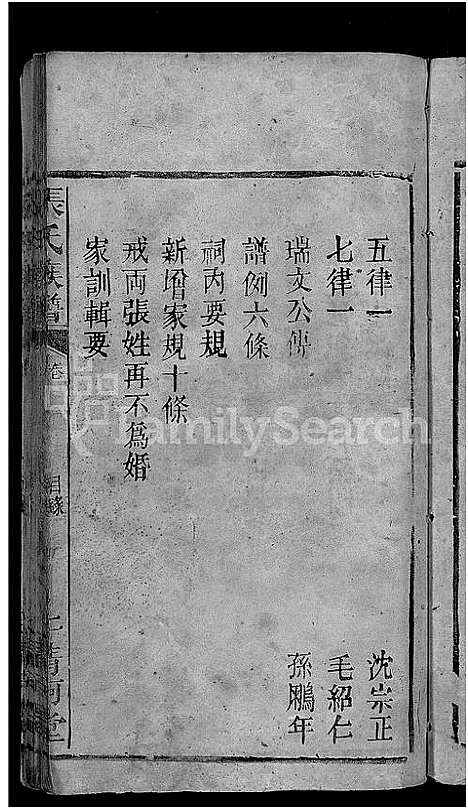 五律一 沈崇正
七律一 毛紹仁
瑞文公傳 孫鵬年
譜例六條
祠內要規
新增家規十條
戒両張姓再不爲婚
家訓輯要
張氏族譜 卷 目錄 清河堂
FamilySearch